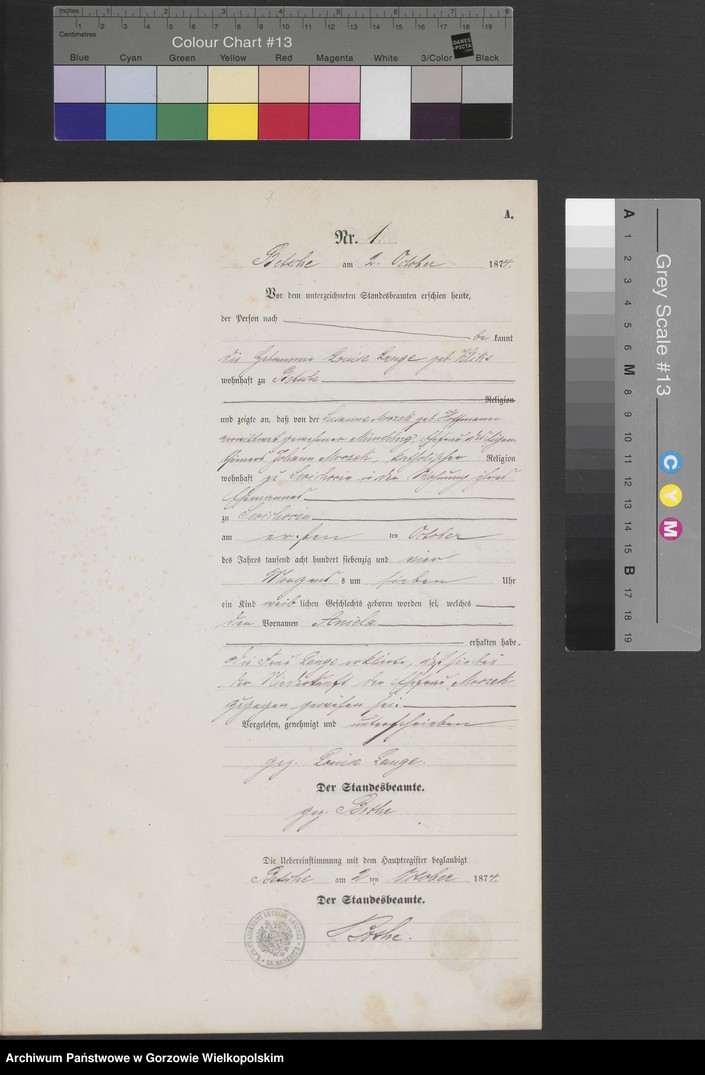 Inches 1 2 3 4 5 6 7 8
1 2 3 4 5 6 7 8 9 10 11 12 13 14 15 16 17 18 19
Centimetres
Colour Chart #13
DANES-PICTA
Blue Cyan Green Yellow Red Magenta White 3/Color Black
9
A.
Nr. 1.
Betsche am 2. October 1874.
Vor dem unterzeichneten Standesbeamten erschien heute,
der Person nach
be kannt
die Hebamme Louise Lange geb.
wohnhaft zu Betsche
Religion
und zeigte an, daß von der Susanna Mrozek geb. Hoffmann
Ehefrau des Eigen
thümers Johann Mrozek, katholischer Religion
wohnhaft zu in der Wohnung ihres
Ehemannes
zu
am ersten ten October
des Jahres tausend acht hundert siebenzig und vier
Morgens um sieben Uhr
ein Kind weib lichen Geschlechts geboren worden sei, welches
den Vornamen Aniela
erhalten habe.
Die Frau Lange erklärte, daß sie bei
der Niederkunft der Ehefrau Mrozek
zugegen gewesen sei.
Vorgelesen, genehmigt und unterschrieben
gez. Louise Lange.
Der Standesbeamte.
gez. Bothe
Die Uebereinstimmung mit dem Hauptregister beglaubigt
Betsche am 2 ten October 1874.
Der Standesbeamte.
Bothe.
Grey Scale #13
A 1 2 3 4 5 6 M 8 9 10 11 12 13 14 15 B 17 18 19
C Y M
Archiwum Państwowe w Gorzowie Wielkopolskim